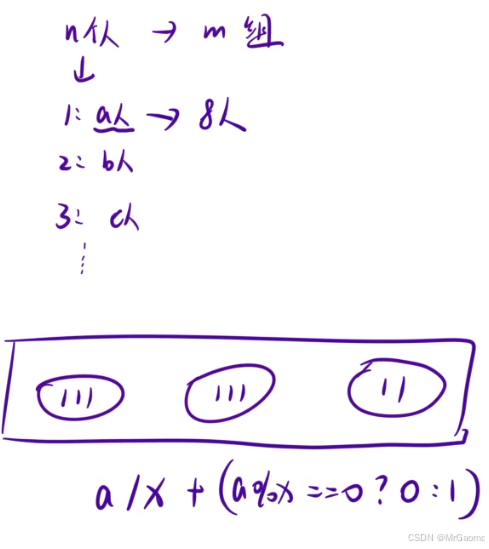 n个人 → m 组
↓
1: a人 → 8人
2: b人
3: c人
⋮
111 111 11
a/x + (a%x==0?0:1)
CSDN @MrGaomq